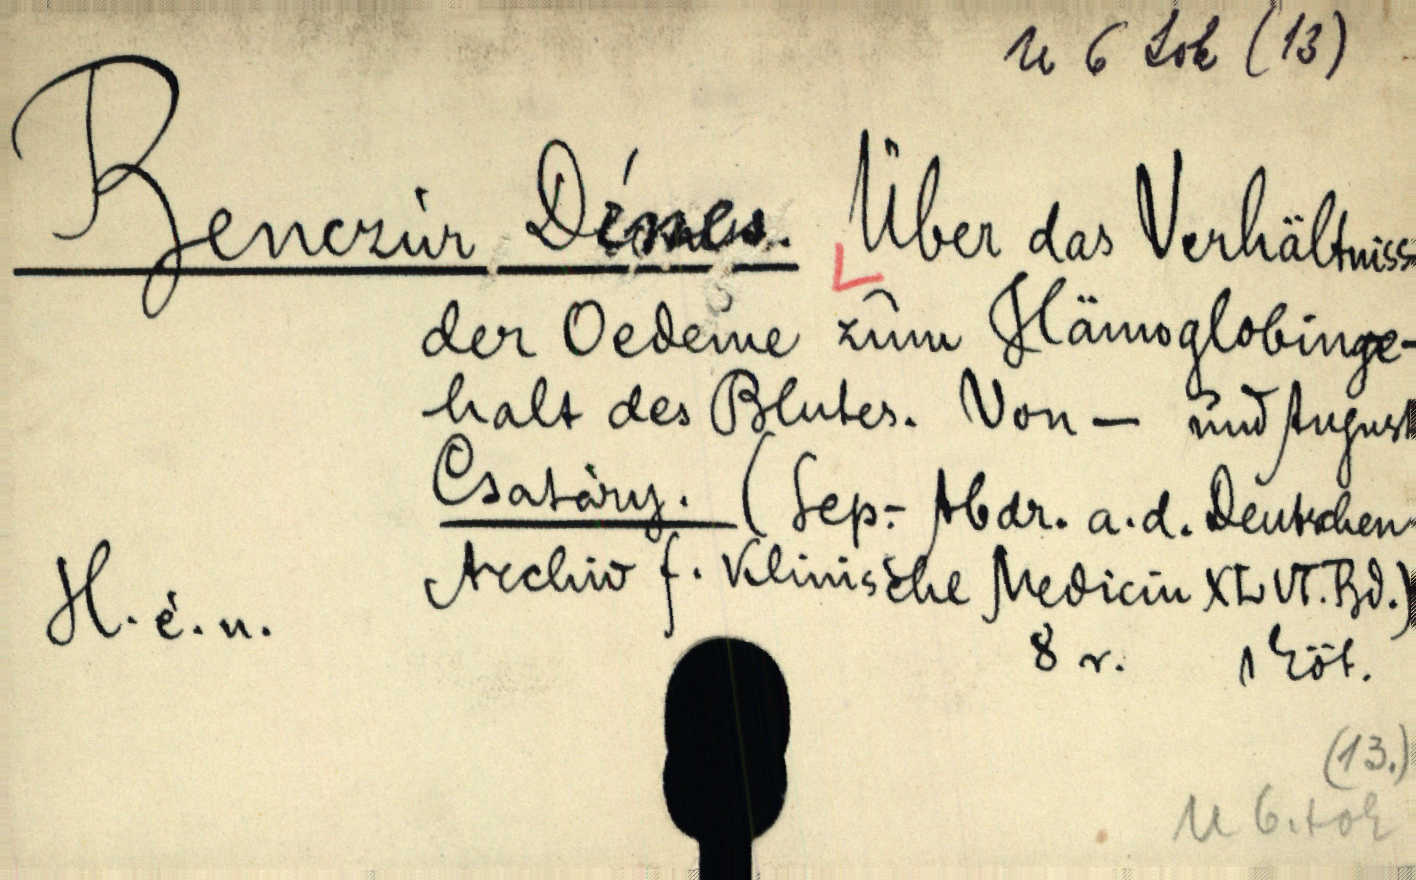 U 6 tok (13)
Benczúr Dénes. Über das Verhältniss
der Oedeme zum Hämoglobinge-
halt des Blutes. Von — und August
Csatáry. (Sep.- Abdr. a. d. Deutschen
Archiv f. Klinische Medicin XLVI. Bd.)
H. é. n.
8 r. 1 köt.
(13.)
U 6. tok